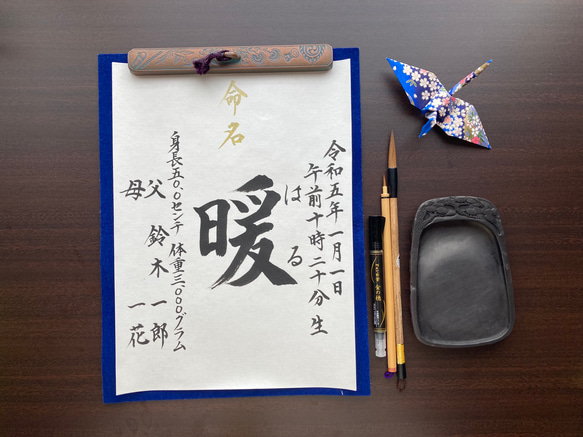 命名
令和五年一月一日
午前十時二十分生
はる
暖
身長五〇.〇センチ 体重三.〇〇〇グラム
父 鈴木 一郎
母 一花